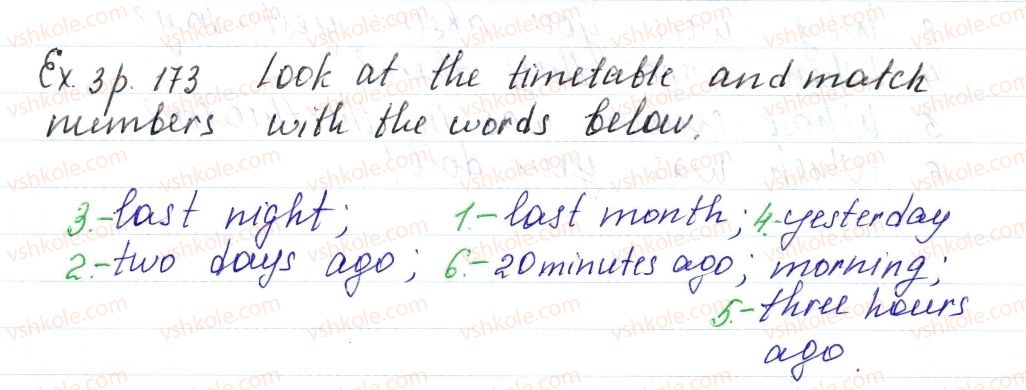 Ex. 3 p. 173 Look at the timetable and match
numbers with the words below.
3.- last night; 1.- last month; 4.- yesterday
2.- two days ago; 6.- 20 minutes ago; morning;
5.- three hours
ago.